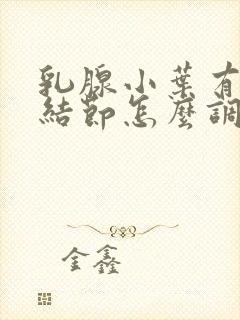 乳腺小葉有
結節怎麼調
金鑫